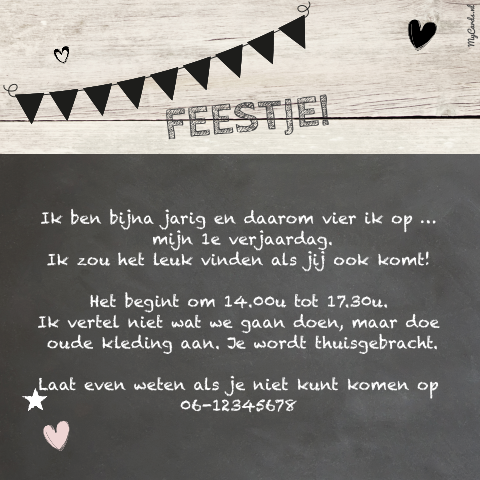 MyCards.nl
FEESTJE!
Ik ben bijna jarig en daarom vier ik op ...
mijn 1e verjaardag.
Ik zou het leuk vinden als jij ook komt!
Het begint om 14.00u tot 17.30u.
Ik vertel niet wat we gaan doen, maar doe
oude kleding aan. Je wordt thuisgebracht.
Laat even weten als je niet kunt komen op
06-12345678